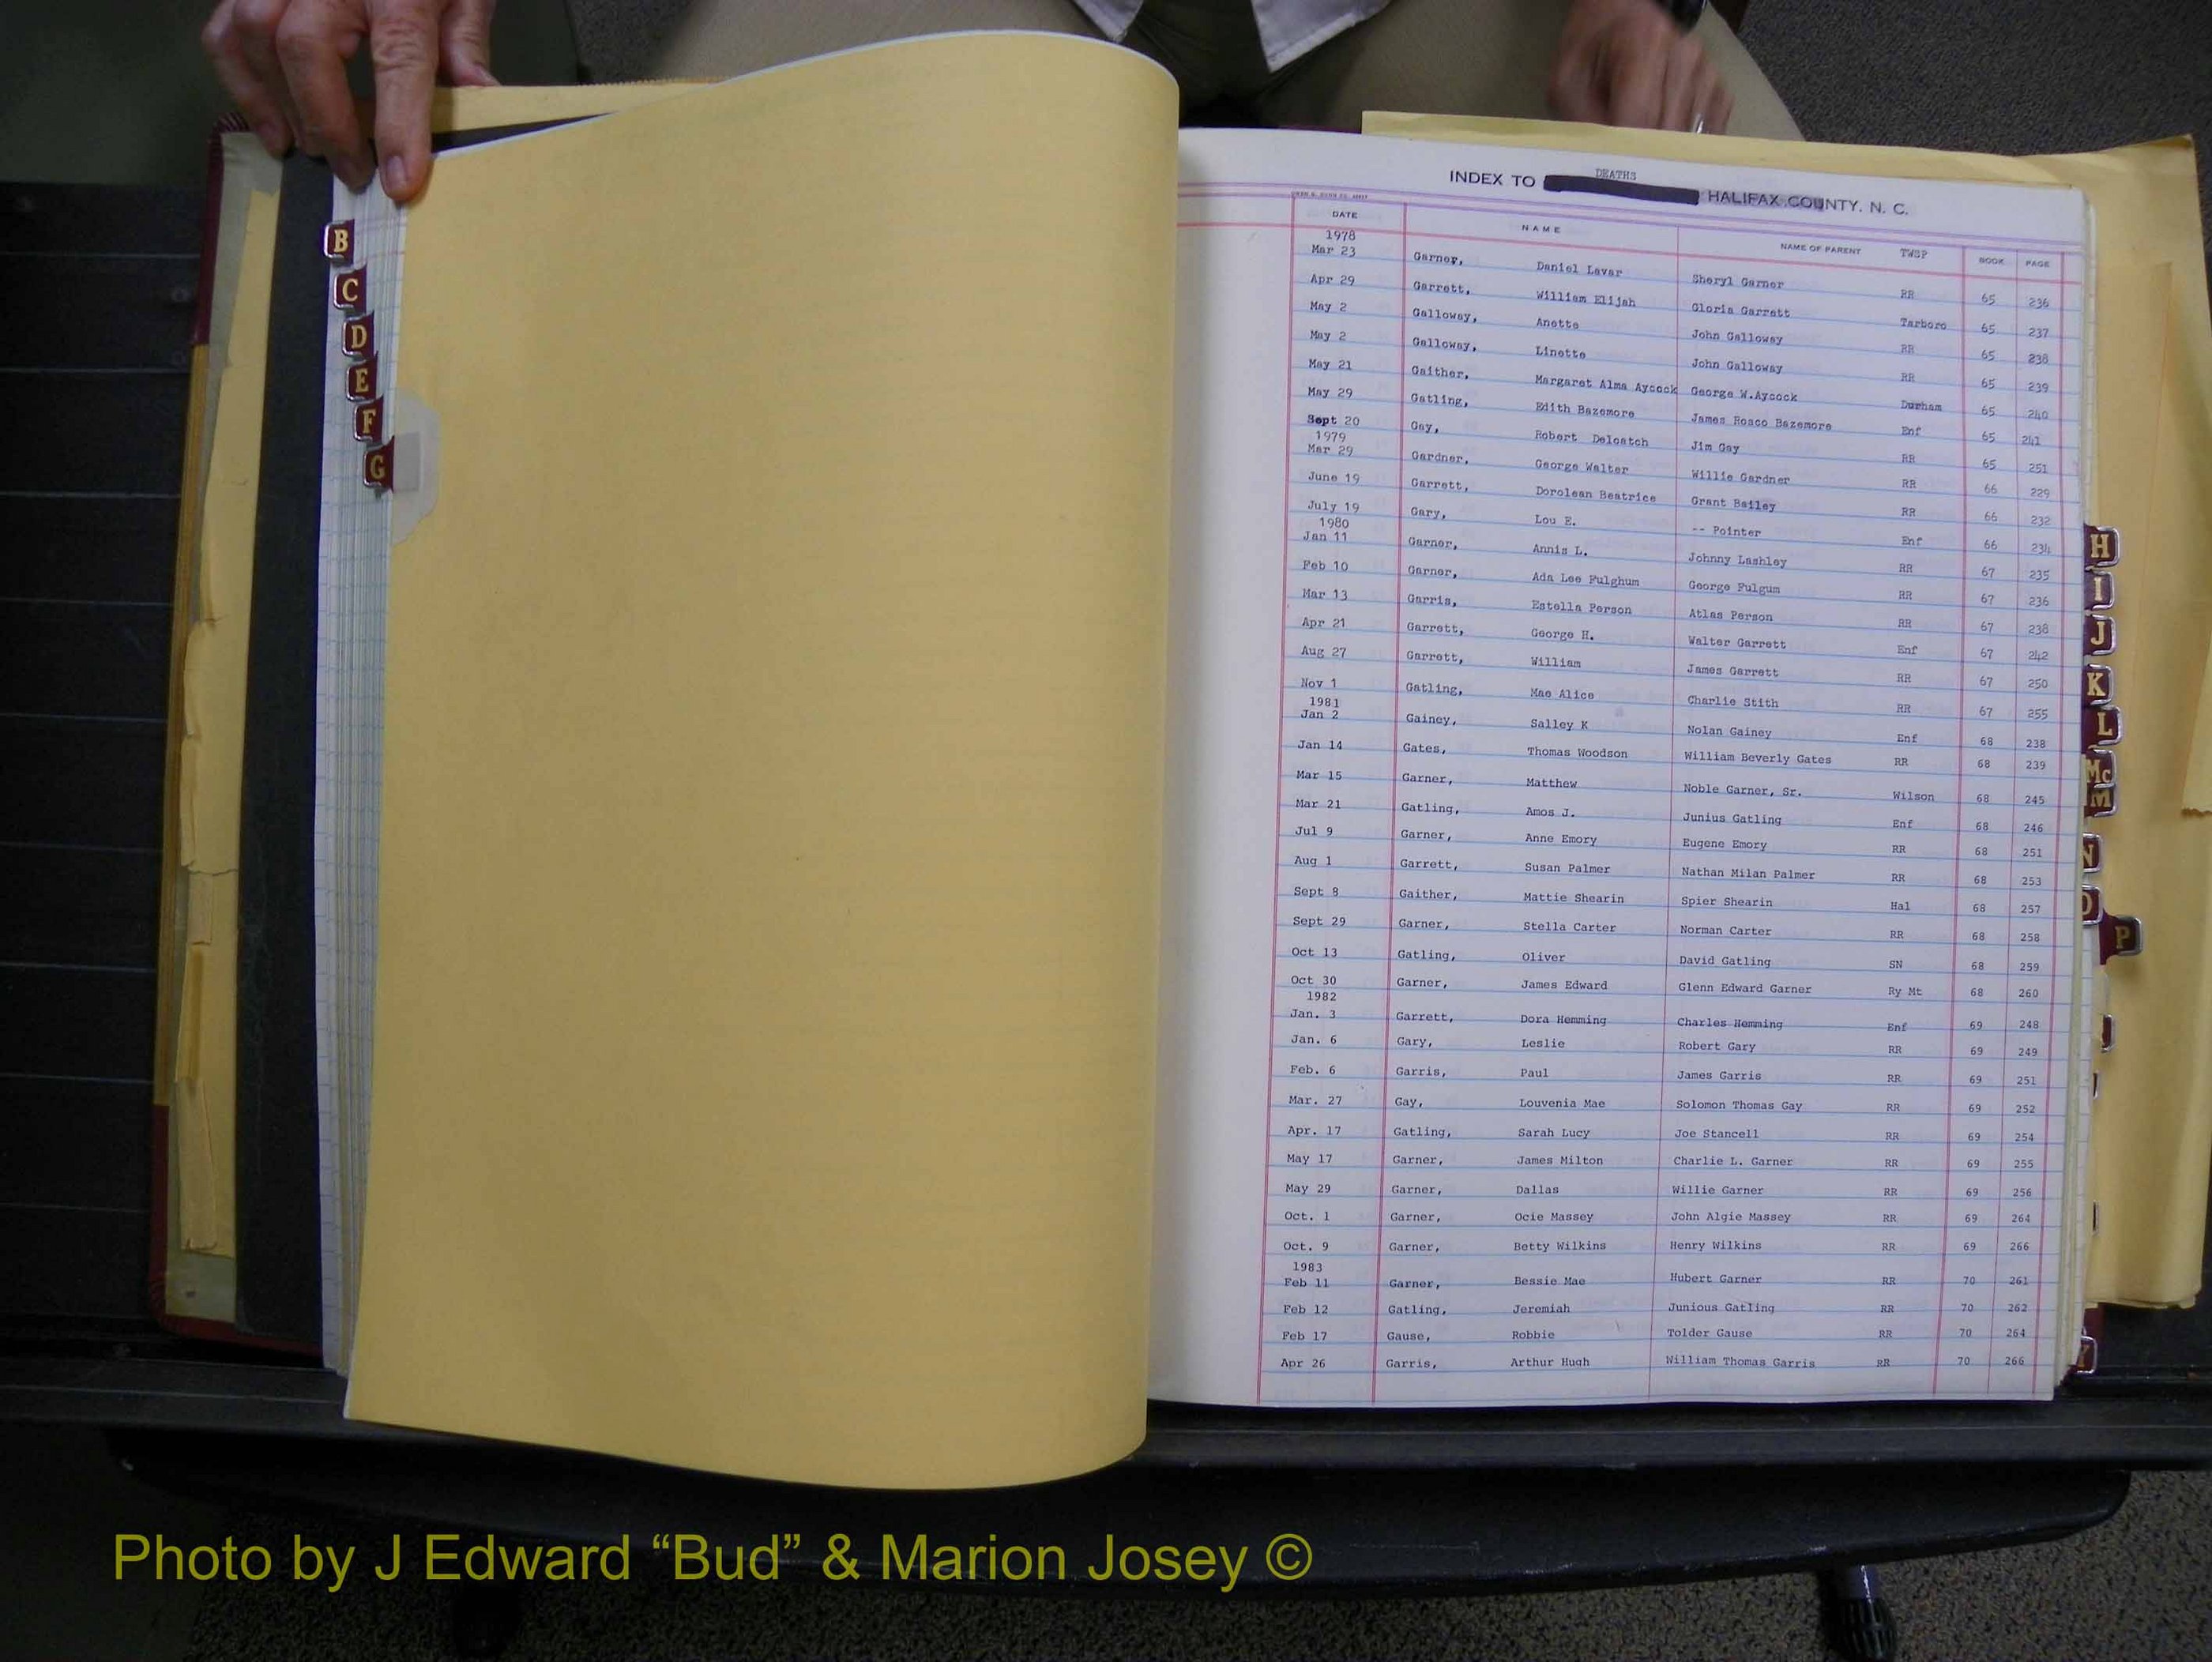 B
C
D
E
F
G
INDEX TO DEATHS HALIFAX COUNTY, N. C.
DATE NAME NAME OF PARENT TWSP BOOK PAGE
1978
Mar 23 Garner, Daniel Lavar Sheryl Garner RR 65 236
Apr 29 Garrett, William Elijah Gloria Garrett Tarboro 65 237
May 2 Galloway, Anette John Galloway RR 65 238
May 2 Galloway, Linette John Galloway RR 65 239
May 21 Gaither, Margaret Alma Aycock George W.Aycock Durham 65 240
May 29 Gatling, Edith Bazemore James Rosco Bazemore Enf 65 241
Sept 20 Gay, Robert Deloatch Jim Gay RR 65 251
1979
Mar 29 Gardner, George Walter Willie Gardner RR 66 229
June 19 Garrett, Dorolean Beatrice Grant Bailey RR 66 232
July 19 Gary, Lou E. -- Pointer Enf 66 234
1980
Jan 11 Garner, Annis L. Johnny Lashley RR 67 235
Feb 10 Garner, Ada Lee Fulghum George Fulgum RR 67 236
Mar 13 Garris, Estella Person Atlas Person RR 67 238
Apr 21 Garrett, George H. Walter Garrett Enf 67 242
Aug 27 Garrett, William James Garrett RR 67 250
Nov 1 Gatling, Mae Alice Charlie Stith RR 67 255
1981
Jan 2 Gainey, Salley K Nolan Gainey Enf 68 238
Jan 14 Gates, Thomas Woodson William Beverly Gates RR 68 239
Mar 15 Garner, Matthew Noble Garner, Sr. Wilson 68 245
Mar 21 Gatling, Amos J. Junius Gatling Enf 68 246
Jul 9 Garner, Anne Emory Eugene Emory RR 68 251
Aug 1 Garrett, Susan Palmer Nathan Milan Palmer RR 68 253
Sept 8 Gaither, Mattie Shearin Spier Shearin Hal 68 257
Sept 29 Garner, Stella Carter Norman Carter RR 68 258
Oct 13 Gatling, Oliver David Gatling SN 68 259
Oct 30 Garner, James Edward Glenn Edward Garner Ry Mt 68 260
1982
Jan. 3 Garrett, Dora Hemming Charles Hemming Enf 69 248
Jan. 6 Gary, Leslie Robert Gary RR 69 249
Feb. 6 Garris, Paul James Garris RR 69 251
Mar. 27 Gay, Louvenia Mae Solomon Thomas Gay RR 69 252
Apr. 17 Gatling, Sarah Lucy Joe Stancell RR 69 254
May 17 Garner, James Milton Charlie L. Garner RR 69 255
May 29 Garner, Dallas Willie Garner RR 69 256
Oct. 1 Garner, Ocie Massey John Algie Massey RR 69 264
Oct. 9 Garner, Betty Wilkins Henry Wilkins RR 69 266
1983
Feb 11 Garner, Bessie Mae Hubert Garner RR 70 261
Feb 12 Gatling, Jeremiah Junious Gatling RR 70 262
Feb 17 Gause, Robbie Tolder Gause RR 70 264
Apr 26 Garris, Arthur Hugh William Thomas Garris RR 70 266
H
I
J
K
L
Mc
M
N
O
P
Photo by J Edward “Bud” & Marion Josey ©